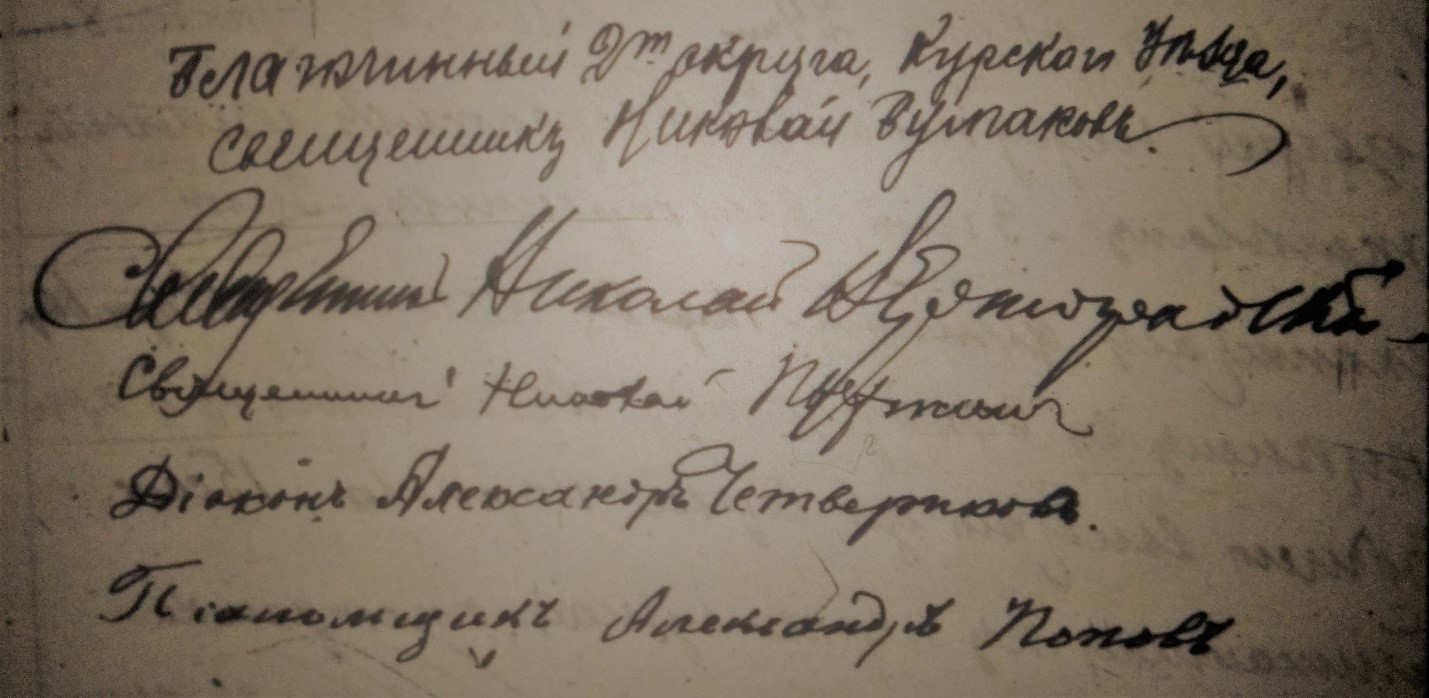 Благочинный 2го округа, Курскаго Уѣзда,
священникъ Николай Булгаковъ.
Священникъ Николай
Священникъ Николай
Діаконъ Александръ Четвериковъ.
Псаломщикъ Александръ Поповъ